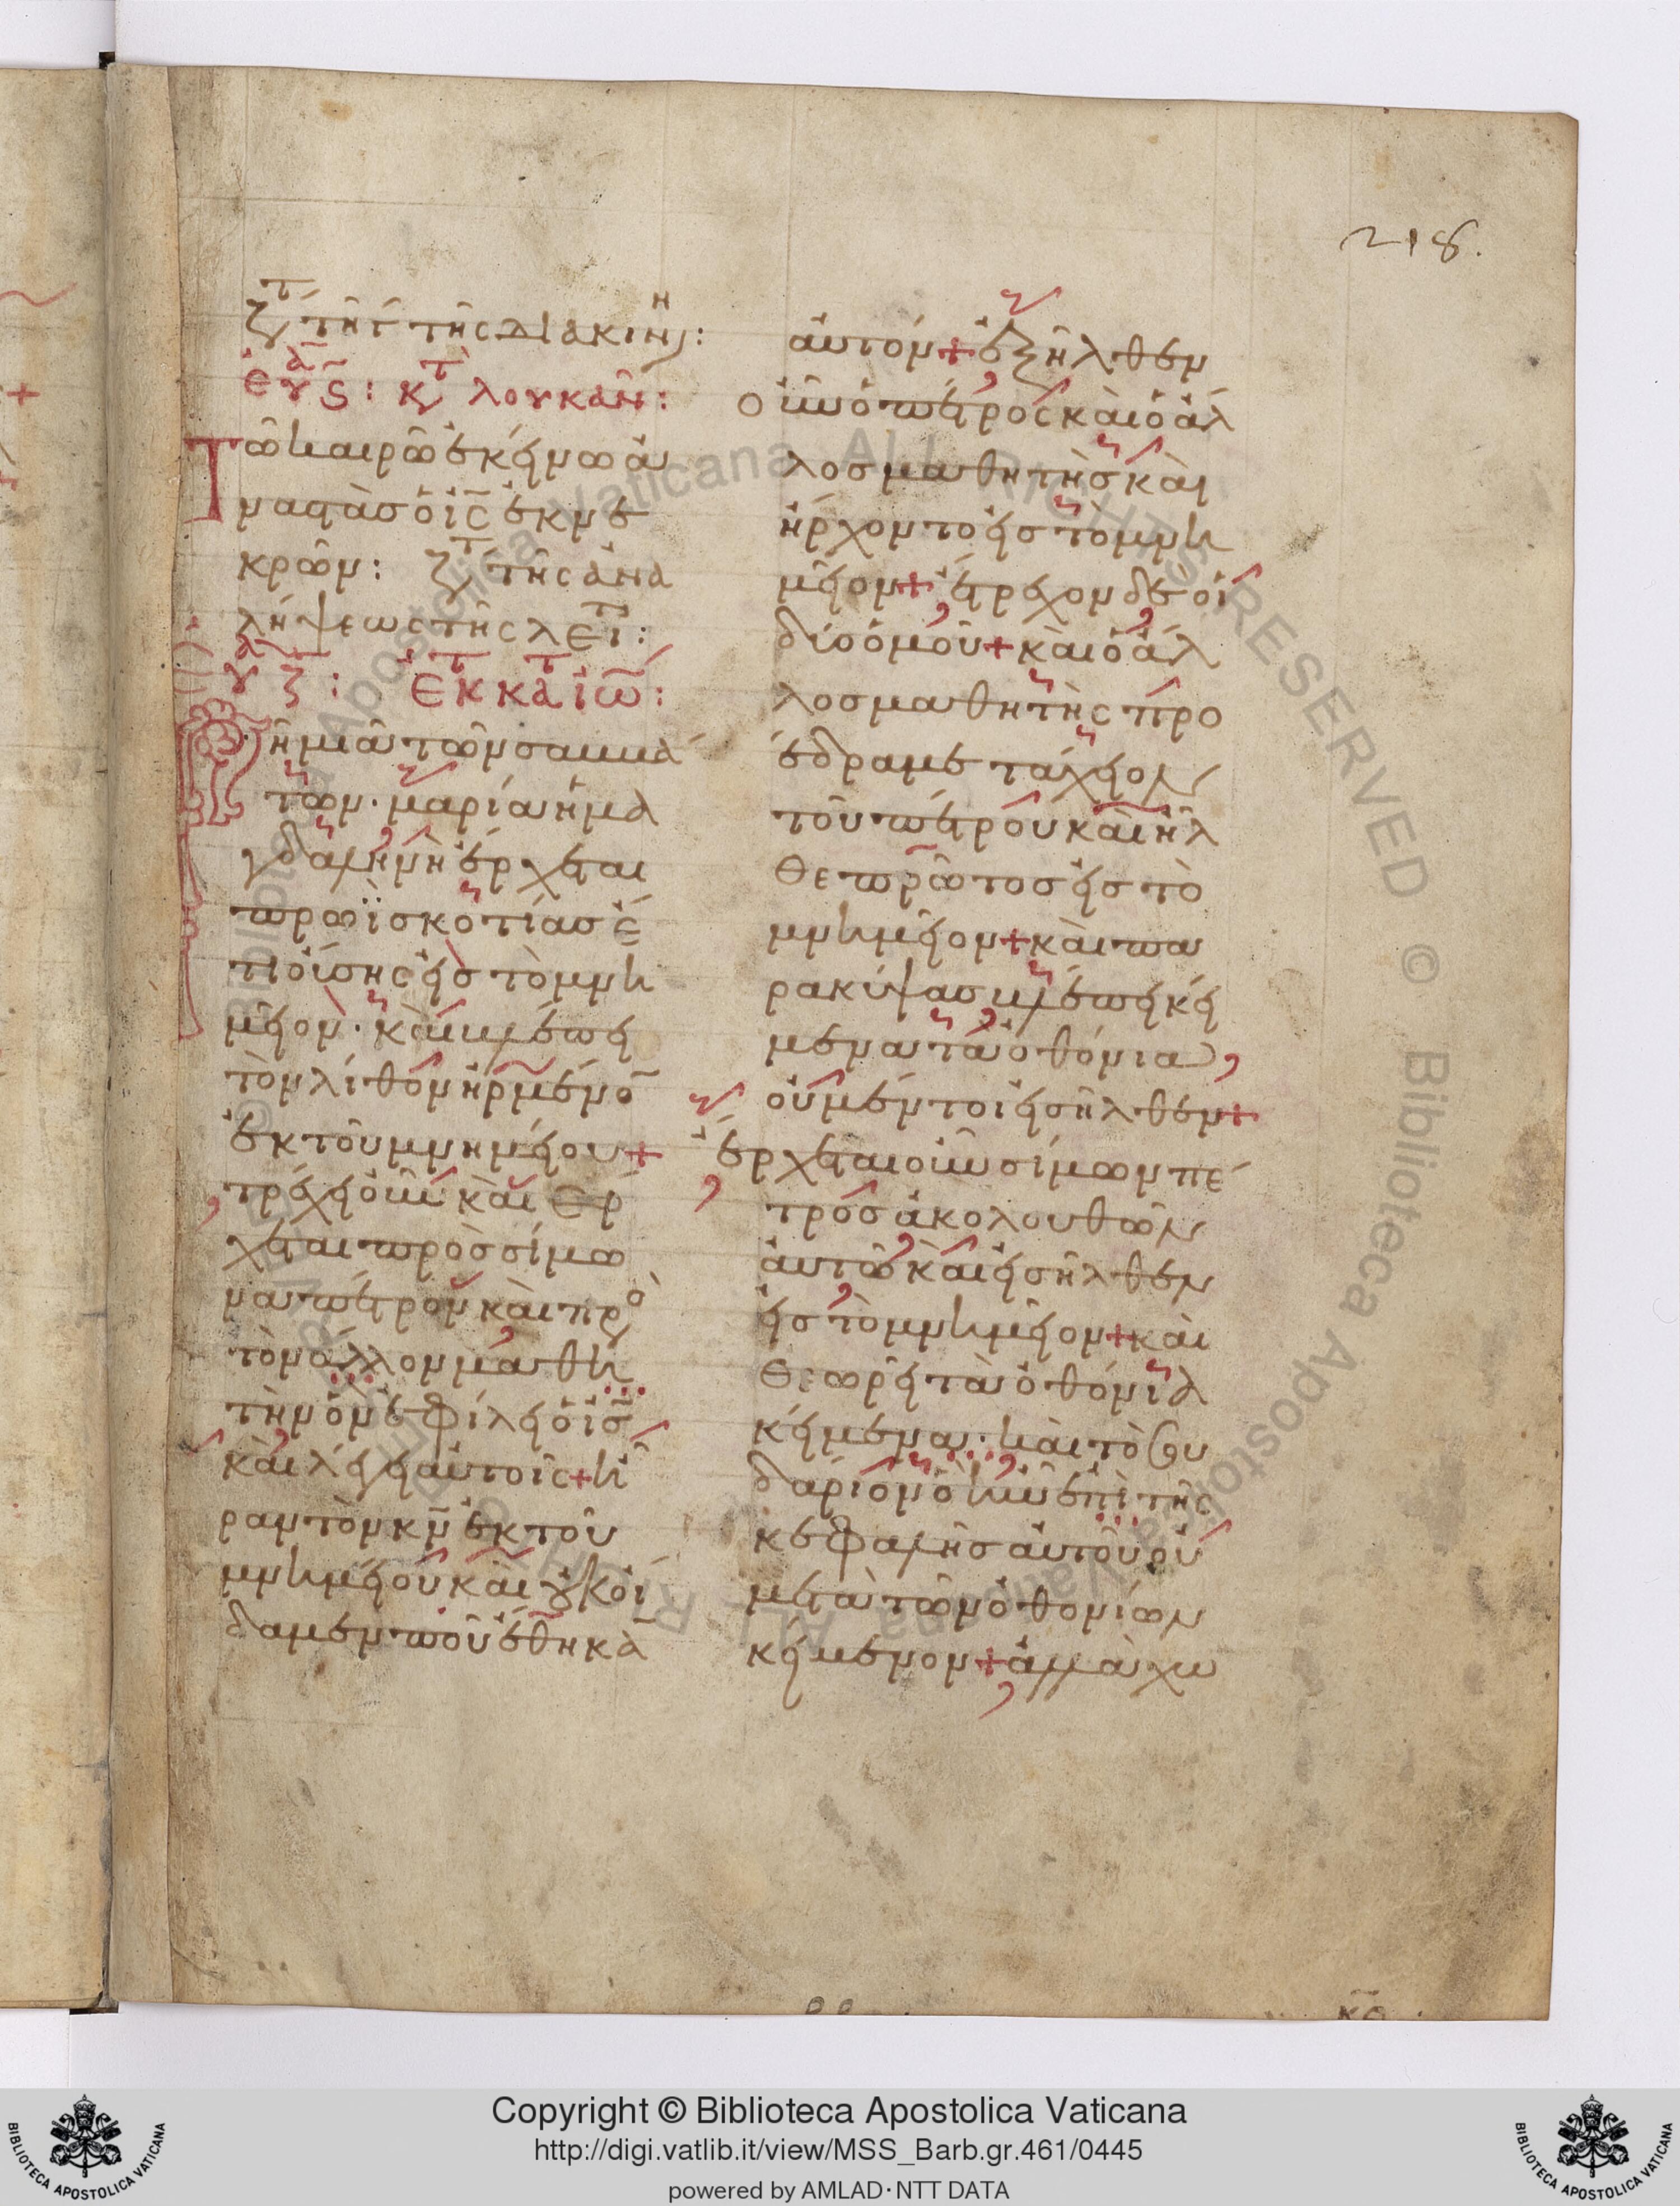 218.
ζτ τῇ γ τῆς διακινη:
εὐα ς: κτ λουκᾶν:
Τῶ καιρῶ ἐκείνω ἀ
ναστὰσ ὁ ις ἐκ νε
κρῶν: ζτ τῆς ἀνα
λήψεως τῆς λει:
εὐα ζ: ἐκ κατ ἰω:
Τῇ μιᾶ τῶν σαββά
των· μαρία ἡ μα
γδαληνὴ ἔρχεται
πρωῒ σκοτίασ ἔ
τι οὔσης εἰσ τὸ μνη
μεῖον· καὶ βλέπει
τὸν λίθον ἠρμένο
ἐκ τοῦ μνημείου+
τρέχει οὖν καὶ ἔρ
χεται πρὸσ σίμω
να πέτρον καὶ πρὸ
τὸν ἄλλον μαθη
τὴν ὃν ἐφίλει ὁ ισ
καὶ λέγει αὐτοῖς+ ἦ
ραν τὸν κν ἐκ τοῦ
μνημείου καὶ οὐκ οἴ
δαμεν ποῦ ἔθηκα
αὐτόν+ ἐξῆλθεν
οὖν ὁ πέτρος καὶ ὁ ἄλ
λοσ μαθητὴσ καὶ
ἤρχοντο εἰσ τὸ μνη
μεῖον+ ἔτρεχον δὲ οἱ
δύο ὁμοῦ+ καὶ ὁ ἄλ
λοσ μαθητὴς προ
έδραμε τάχειον
τοῦ πέτρου καὶ ἦλ
θε πρῶτοσ εἰσ τὸ
μνημεῖον+ καὶ πα
ρακύψασ βλέπει κεί
μενα τὰ ὀθόνια,
οὐ μέντοι εἰσῆλθεν+
ἔρχεται οὖν σίμων πέ
τροσ ἀκολουθῶν
αὐτῶ καὶ εἰσῆλθεν
εἰσ τὸ μνημεῖον+ καὶ
θεωρεῖ τὰ ὀθόνια
κείμενα· καὶ τὸ σου
δάριον ὃ ἦν ἐπὶ τῆς
κεφαλῆσ αὐτοῦ οὐ
μετὰ τῶν ὀθονίων
κείμενον+ ἀλλὰ χω
Copyright © Biblioteca Apostolica Vaticana
http://digi.vatlib.it/view/MSS_Barb.gr.461/0445
powered by AMLAD·NTT DATA